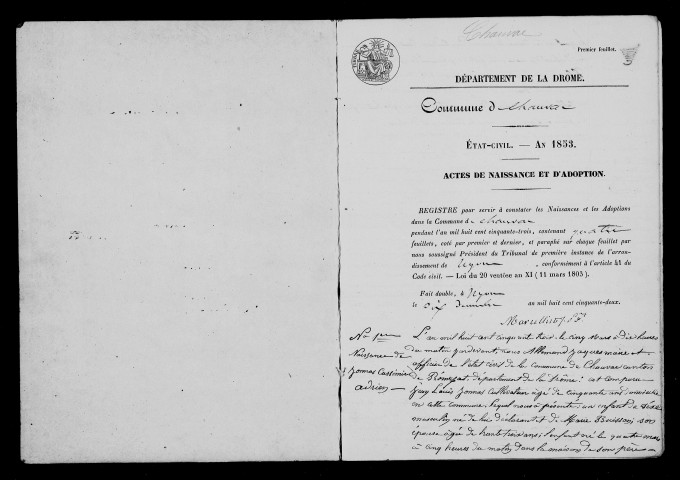 Chauvac
Premier feuillet.
DÉPARTEMENT DE LA DRÔME.
Commune d Chauvac
ÉTAT-CIVIL. — AN 1853.
ACTES DE NAISSANCE ET D'ADOPTION.
REGISTRE pour servir à constater les Naissances et les Adoptions
dans la Commune de Chauvac
pendant l'an mil huit cent cinquante-trois, contenant quatre
feuillets, coté par premier et dernier, et paraphé sur chaque feuillet par
nous soussigné Président du Tribunal de première instance de l'arron-
dissement de Nyons , conformément à l'article 41 du
Code civil. — Loi du 20 ventôse an XI (11 mars 1803).
Fait double, à Nyons
le dix Décembre an mil huit cent cinquante-deux.
No 1er
Naissance de
Casimir
adrien
L'an mil huit cent cinquante trois le cinq Mars à dix heures
du matin pardevant nous Allemand Jacques maire et
officier de l'état civil de la commune de Chauvac canton
de Rémuzat département de la Drôme : est comparu
Louis cultivateur âgé de cinquante ans domicilié
en cette commune. Lequel nous a présenté un enfant de Sexe
masculin né de lui déclarant et de Marie Buisson son
épouse âgée de trente trois ans l'enfant né le quatre mars
à cinq heures du matin dans la maison de son père